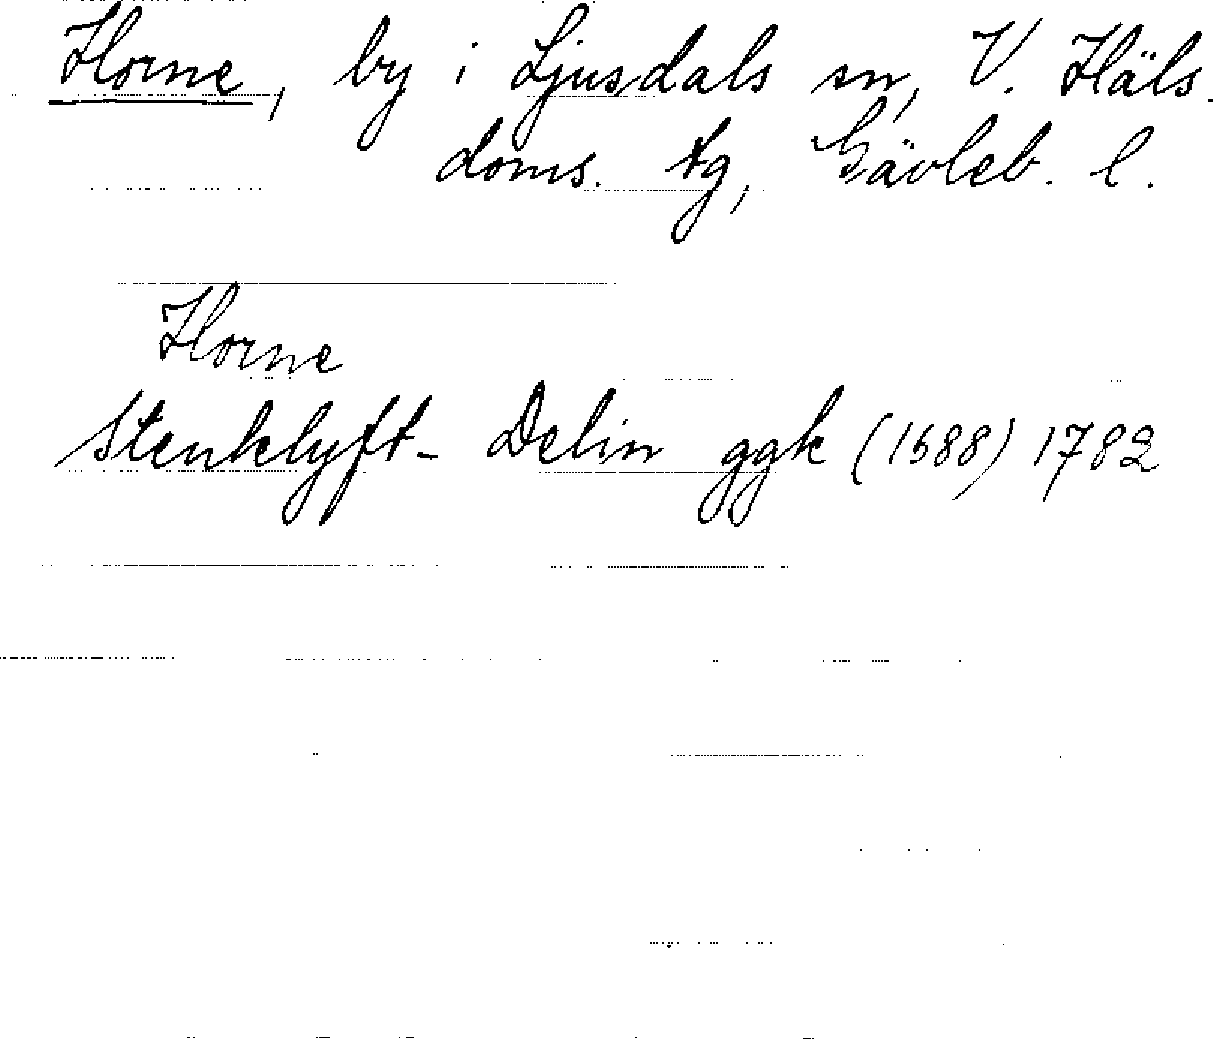 Horne, by i Ljusdals sn, V. Häls.
doms. tg, Gävleb. l.
Horne
Stenklyft- Delin ggk (1688) 1782